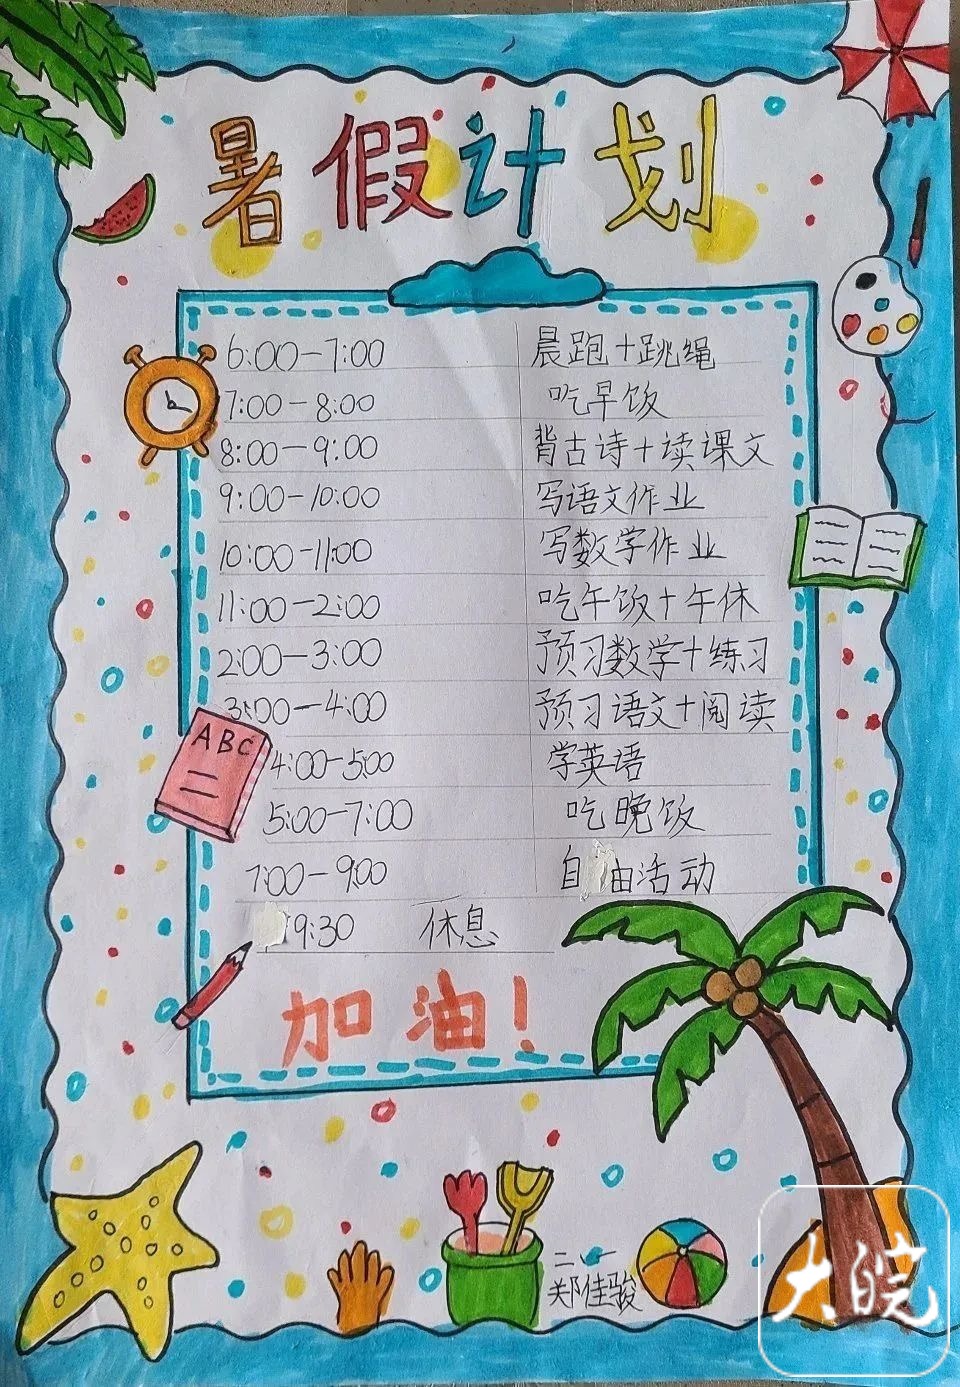 暑假计划
6:00-7:00 晨跑+跳绳
7:00-8:00 吃早饭
8:00-9:00 背古诗+读课文
9:00-10:00 写语文作业
10:00-11:00 写数学作业
11:00-2:00 吃午饭+午休
2:00-3:00 预习数学+练习
3:00-4:00 预习语文+阅读
ABC
4:00-5:00 学英语
5:00-7:00 吃晚饭
7:00-9:00 自由活动
9:30 休息
加油!
二
郑佳骏
大皖